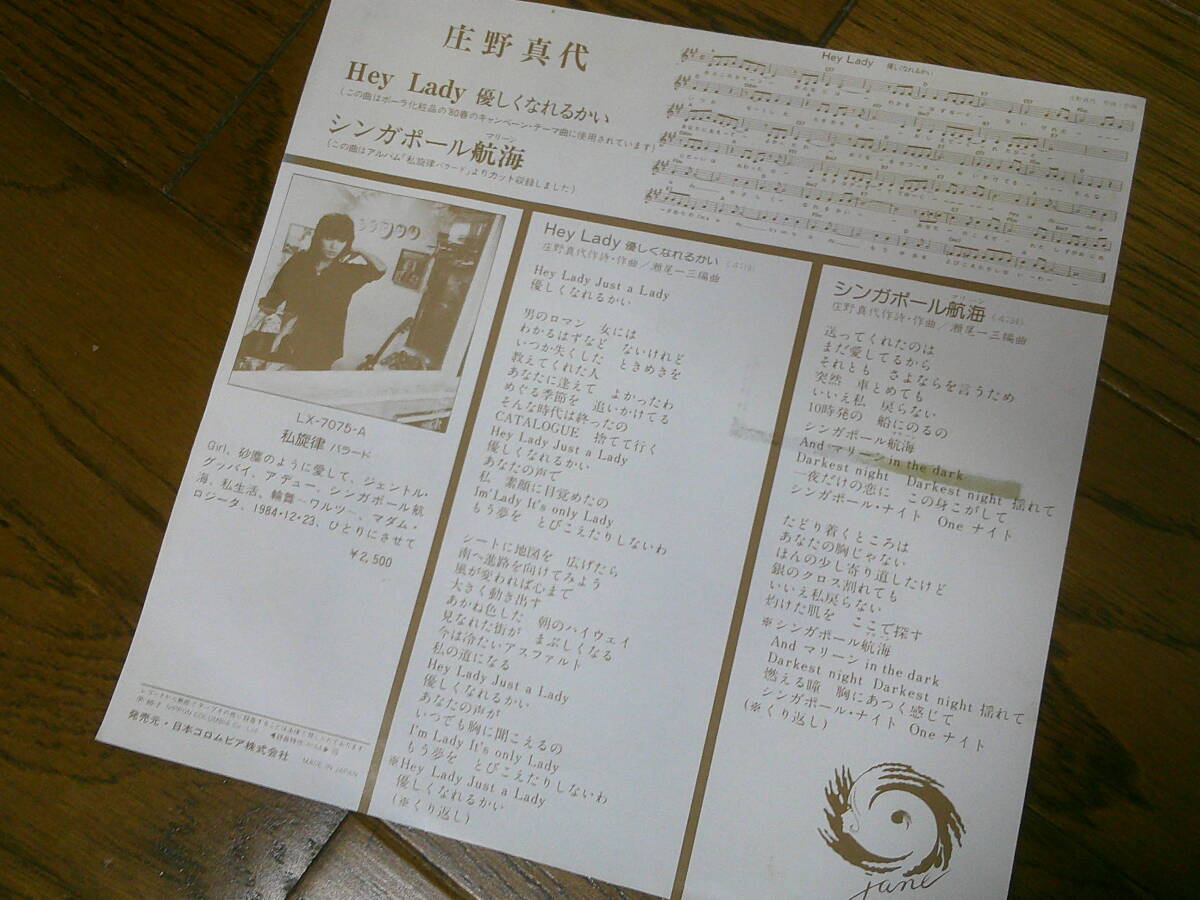 庄野真代
Hey Lady 優しくなれるかい
(この曲はポーラ化粧品の'80春のキャンペーン・テーマ曲に使用されています)
マリーン
シンガポール航海
(この曲はアルバム「私旋律バラード」よりカット収録しました)
Hey Lady 優しくなれるかい
LX-7075-A
私旋律 バラード
Girl、砂塵のように愛して、ジェントル・
グッバイ、アデュー、シンガポール航
海、私生活、輪舞―ワルツ―、マダム・
ロジータ、1984・12・23、ひとりにさせて
¥2,500
発売元・日本コロムビア株式会社
MADE IN JAPAN
Hey Lady 優しくなれるかい
庄野真代作詩・作曲／瀬尾一三編曲
Hey Lady Just a Lady
優しくなれるかい
男のロマン 女には
わかるはずなど ないけれど
いつか失くした ときめきを
教えてくれた人
あなたに逢えて よかったわ
めぐる季節を 追いかけてる
そんな時代は終ったの
CATALOGUE 捨てて行く
Hey Lady Just a Lady
優しくなれるかい
あなたの声で
私 素顔に目覚めたの
Im' Lady It's only Lady
もう夢を とびこえたりしないわ
シートに地図を 広げたら
南へ進路を向けてみよう
風が変われば心まで
大きく動き出す
あかね色した 朝のハイウェイ
見なれた街が まぶしくなる
今は冷たいアスファルト
私の道になる
Hey Lady Just a Lady
優しくなれるかい
あなたの声が
いつでも胸に聞こえるの
I'm Lady It's only Lady
もう夢を とびこえたりしないわ
※Hey Lady Just a Lady
優しくなれるかい
(※くり返し)
マリーン
シンガポール航海
庄野真代作詩・作曲／瀬尾一三編曲
送ってくれたのは
まだ愛してるから
それとも さよならを言うため
突然 車とめても
いいえ私 戻らない
10時発の 船にのるの
シンガポール航海
And マリーン in the dark
Darkest night Darkest night 揺れて
一夜だけの恋に この身こがして
シンガポール・ナイト One ナイト
たどり着くところは
あなたの胸じゃない
ほんの少し寄り道したけど
銀のクロス割れても
いいえ私戻らない
灼けた肌を ここで探す
※シンガポール航海
And マリーン in the dark
Darkest night Darkest night 揺れて
燃える瞳 胸にあつく感じて
シンガポール・ナイト One ナイト
(※くり返し)
jane